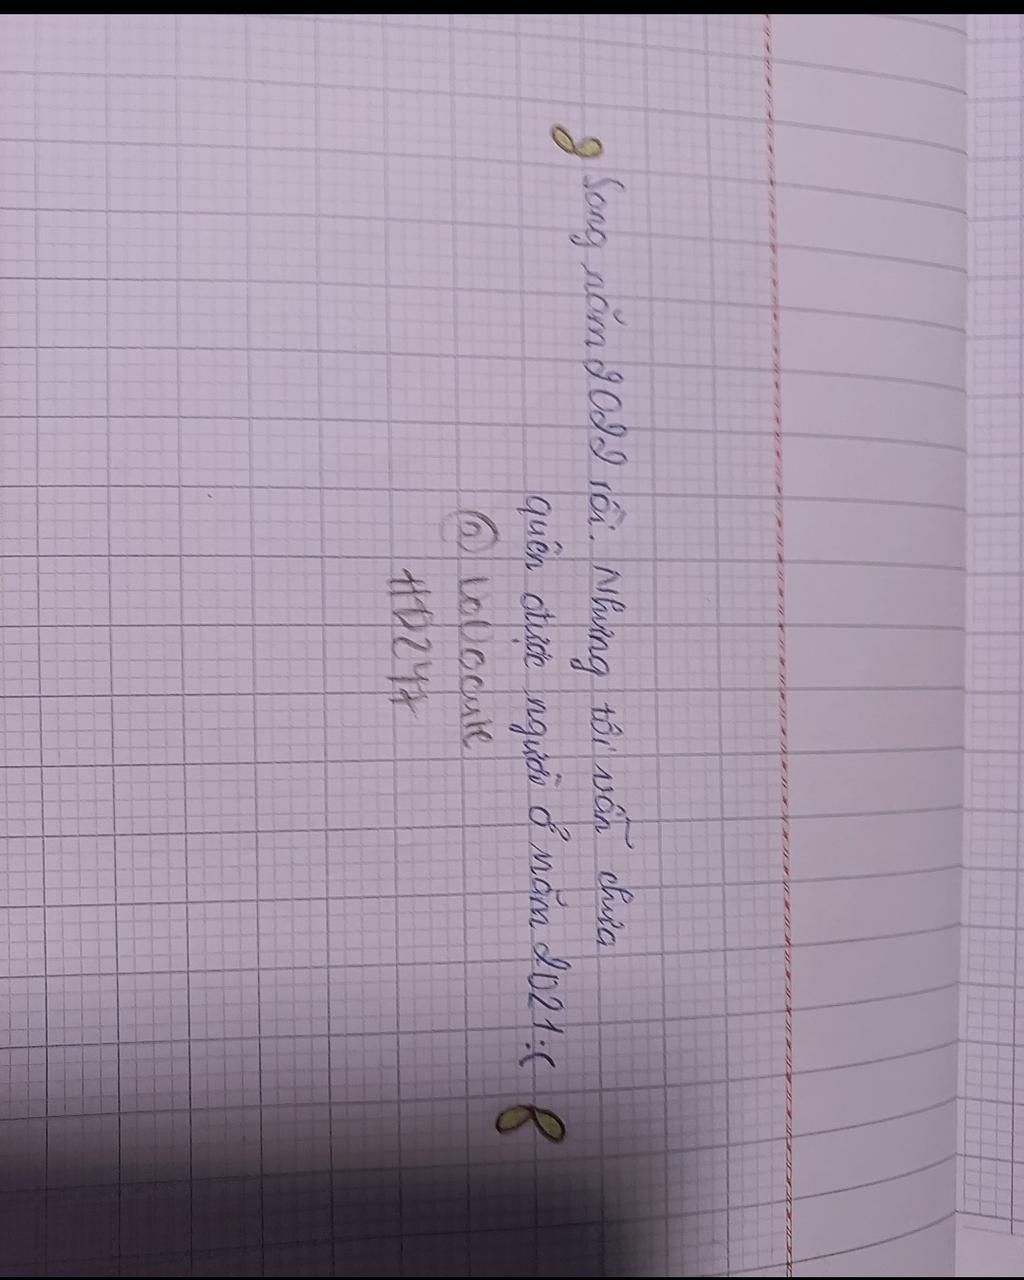 Song năm 2022 rồi. Nhưng tôi vẫn chưa
quên được người ở năm 2021 :(